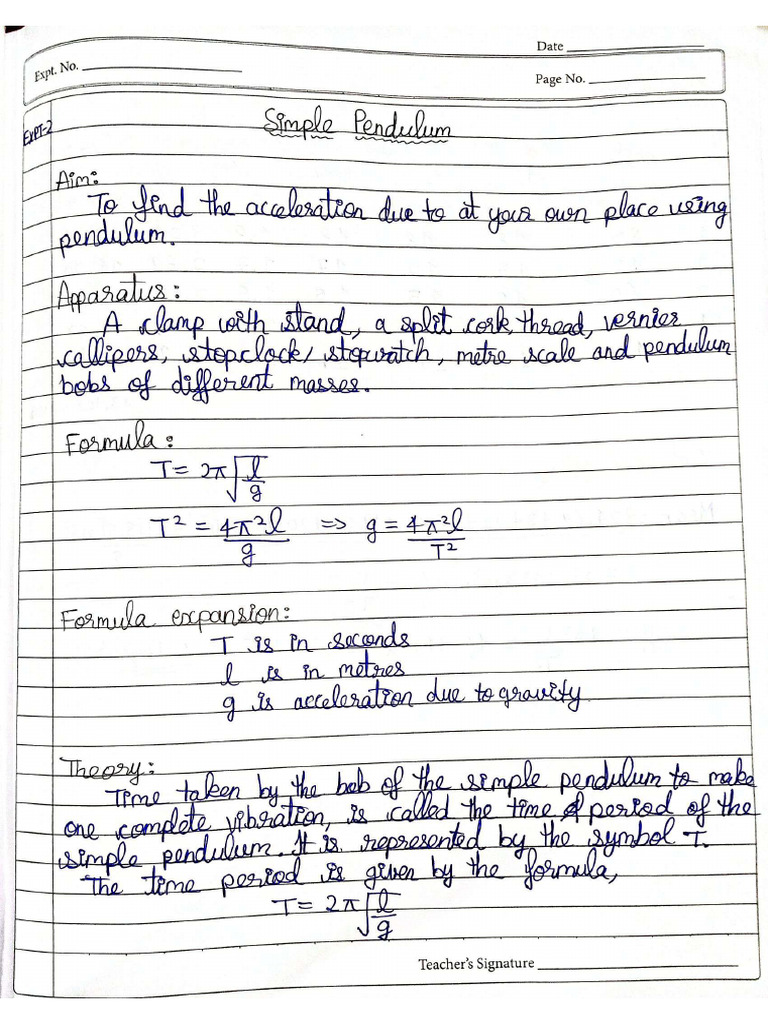 Date
Expt. No.
Page No.
EXPT-2
Simple Pendulum
Aim:
To find the acceleration due to at your own place using
pendulum.
Apparatus:
A clamp with stand, a split cork, thread, vernier
callipers, stopclock/stopwatch, metre scale and pendulum
bobs of different masses.
Formula:
T = 2π√(l/g)
T² = 4π²l/g ⇒ g = 4π²l/T²
Formula expansion:
T is in seconds
l is in metres
g is acceleration due to gravity
Theory:
Time taken by the bob of the simple pendulum to make
one complete vibration, is called the time period of the
simple pendulum. It is represented by the symbol T.
The time period is given by the formula,
T = 2π√(l/g)
Teacher's Signature